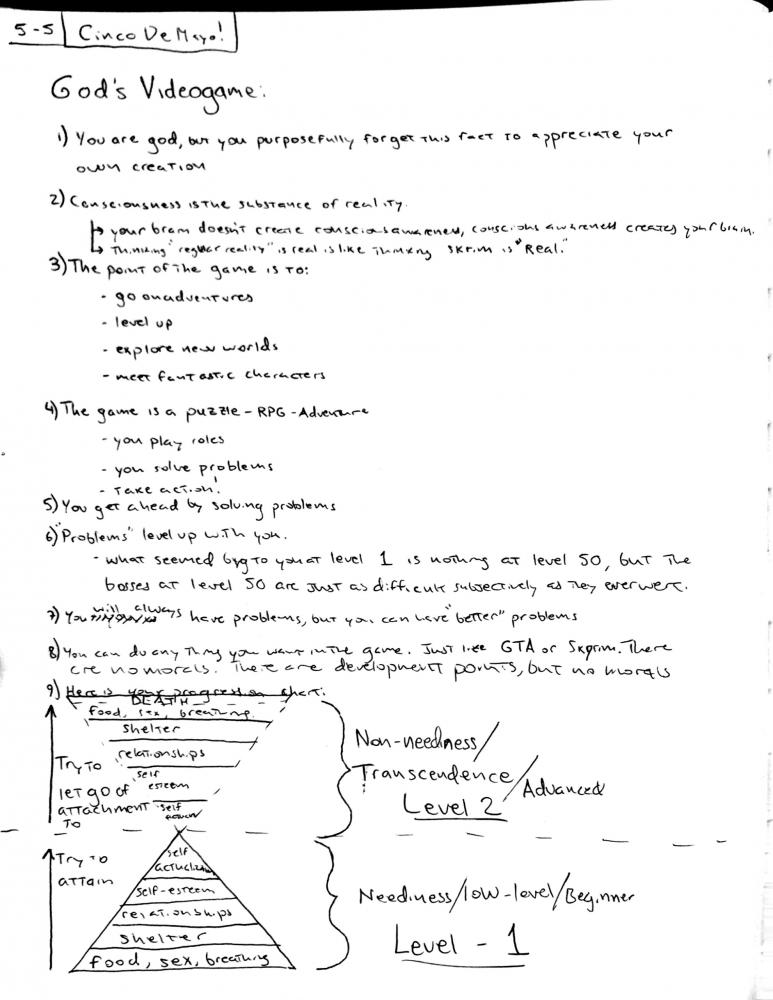 5-5 Cinco De Mayo!
God's Videogame:
1) You are god, but you purposefully forget this fact to appreciate your
own creation
2) Consciousness is the substance of reality.
↳ your brain doesn't create conscious awareness, conscious awareness creates your brain.
↳ Thinking "regular reality" is real is like Thinking Skrim is "Real."
3) The point of the game is to:
- go on adventures
- level up
- explore new worlds
- meet fantastic characters
4) The game is a puzzle-RPG-Adventure
- you play roles
- you solve problems
- Take action!
5) You get ahead by solving problems
6) "Problems" level up with you.
- what seemed big to you at level 1 is nothing at level 50, but the
bosses at level 50 are just as difficult subjectively as they ever were.
7) You will always have problems, but you can have "better" problems
8) You can do any thing you want in the game. Just like GTA or Skyrim. There
are no morals. There are development points, but no morals
9) Here is your progression chart:
DEATH
food, sex, breathing
shelter
relationships
self
esteem
self
Try To
let go of
attachment
To
Non-neediness/
Transcendence/Advanced
Level 2
Try to
attain
self
actualization
self-esteem
relationships
shelter
food, sex, breathing
Neediness/low-level/Beginner
Level - 1